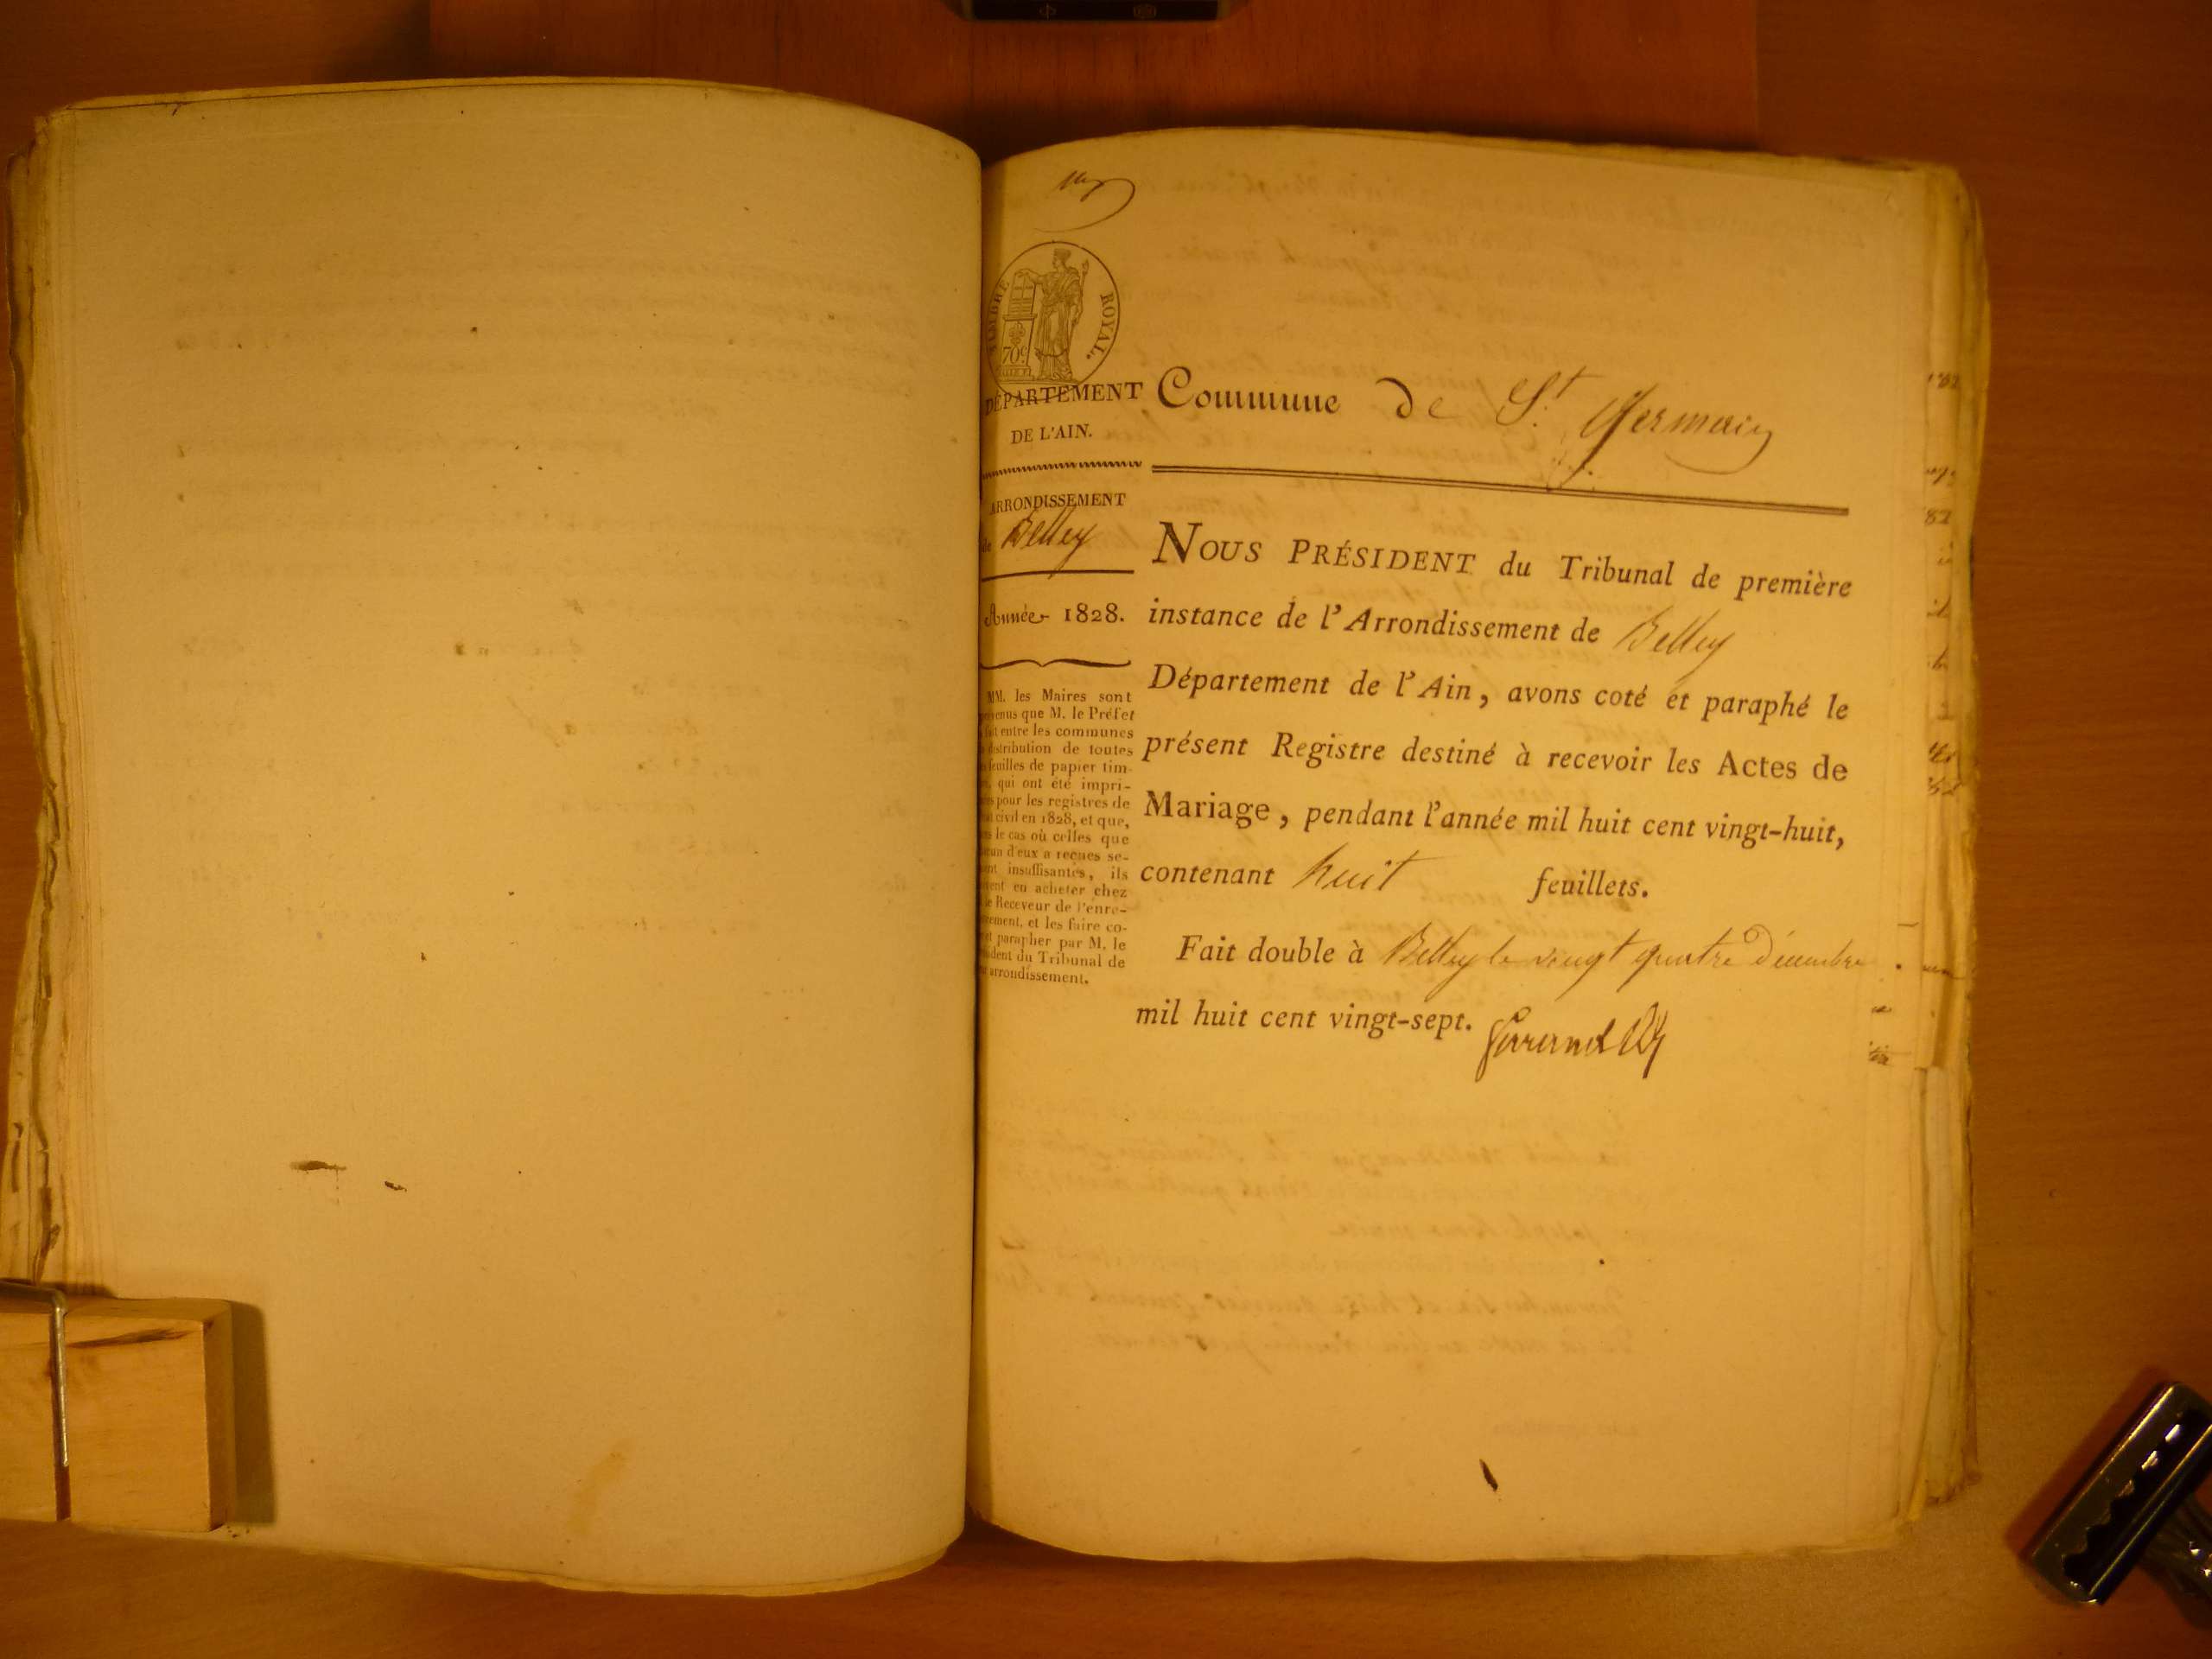 TIMBRE ROYAL.
70c
DÉPARTEMENT
DE L'AIN.
ARRONDISSEMENT
de Belley
Année 1828.
MM. les Maires sont
prévenus que M. le Préfet
a fait entre les communes
la distribution de toutes
les feuilles de papier tim-
bré, qui ont été impri-
mées pour les registres de
l'état civil en 1828, et que,
dans le cas où celles que
chacun d'eux a reçues se-
raient insuffisantes, ils
doivent en acheter chez
le Receveur de l'enre-
gistrement, et les faire co-
ter et parapher par M. le
Président du Tribunal de
arrondissement.
Commune de St. Germain
NOUS PRÉSIDENT du Tribunal de première
instance de l'Arrondissement de Belley
Département de l'Ain, avons coté et paraphé le
présent Registre destiné à recevoir les Actes de
Mariage, pendant l'année mil huit cent vingt-huit,
contenant huit feuillets.
Fait double à Belley le vingt quatre Décembre
mil huit cent vingt-sept.